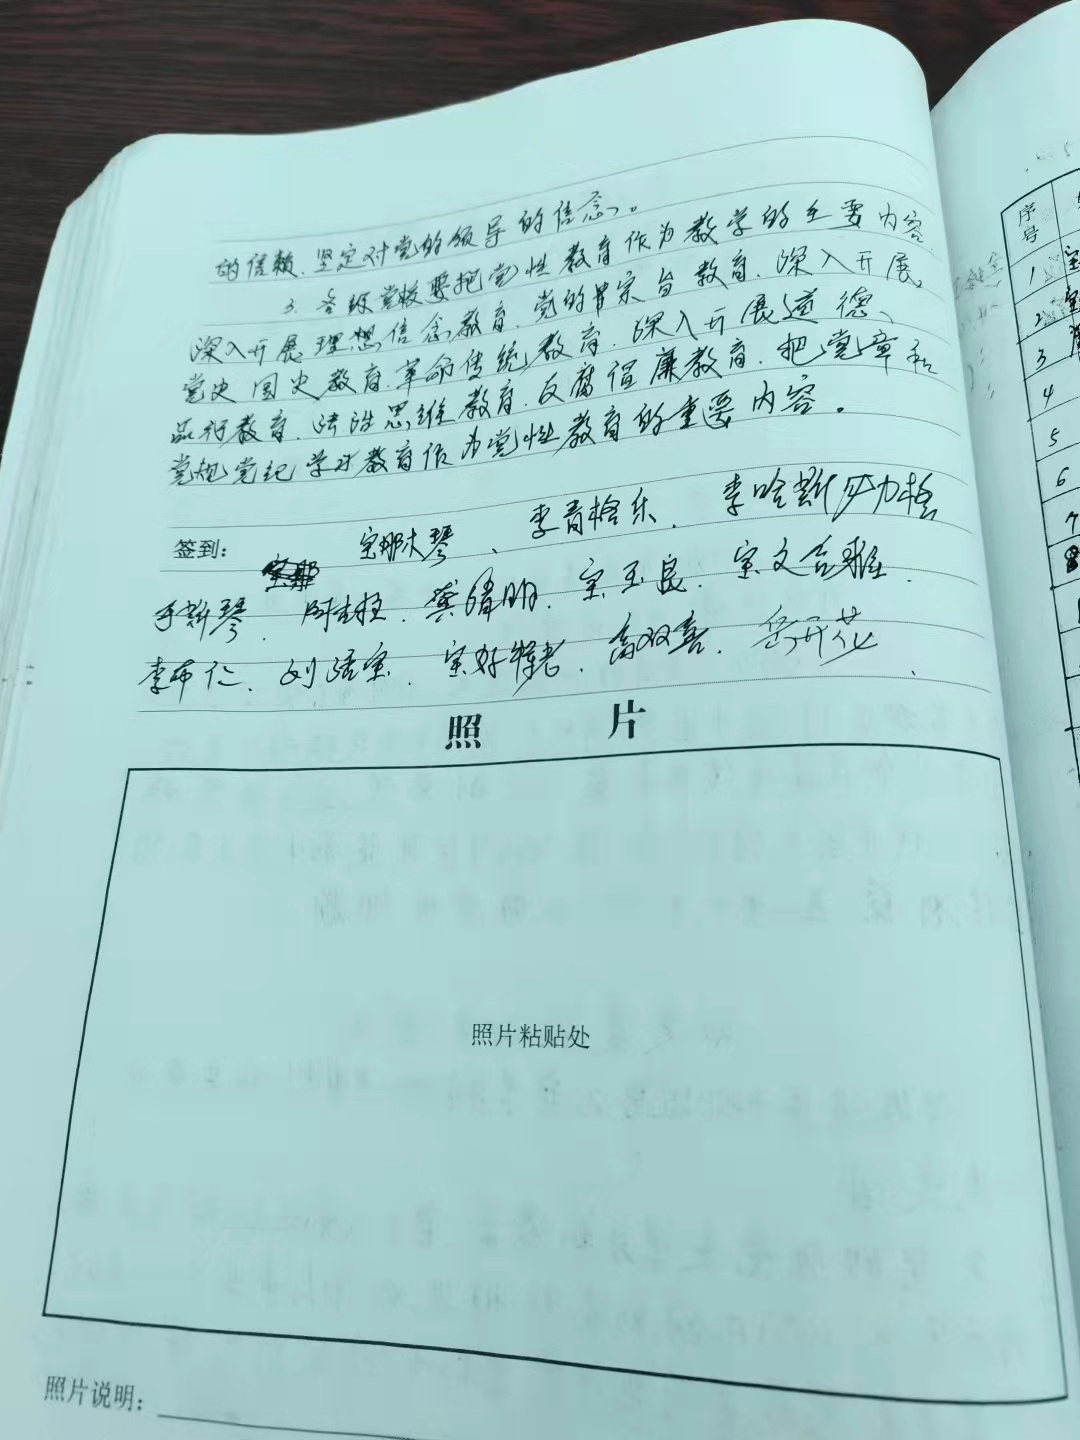 的信赖、坚定对党的领导的信念。
3. 各级党校要把党性教育作为教学的主要内容,
深入开展理想信念教育、党的宗旨教育、深入开展
党史国史教育、革命传统教育、深入开展道德、
品行教育、法治思维教育、反腐倡廉教育、把党章和
党规党纪学习教育作为党性教育的重要内容。
签到: 宝那木琴、李青格乐、李哈斯
宝那
琴、宝玉良、宝文
李布仁、刘、宝
照 片
照片粘贴处
照片说明:
序号
1 宝
2
3
4
5
6
7
8